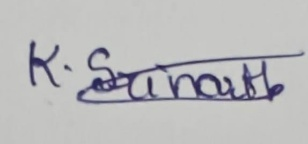 K. Srinath